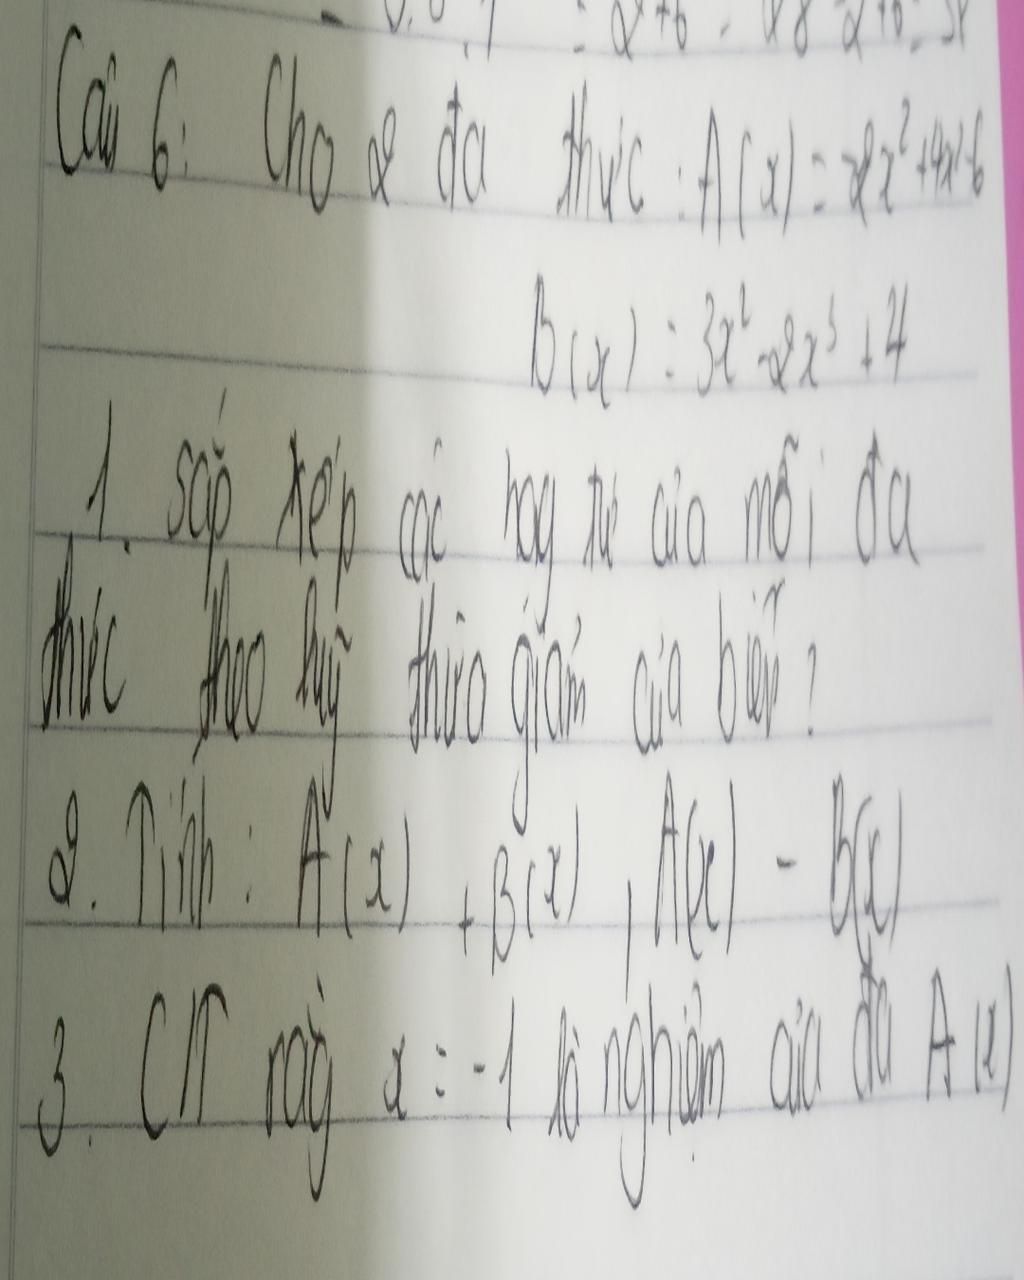 Câu 6: Cho 2 đa thức: A(x) = 2x² +4x³-6
B(x) = 3x² -2x³ + 4
1. sắp xếp các hạg tử của mỗi đa
thức theo luỹ thừa giảm của biến?
2. Tính: A(x) + B(x), A(x) - B(x)
3. CIT rằg x = -1 là nghiệm của đa A(x)